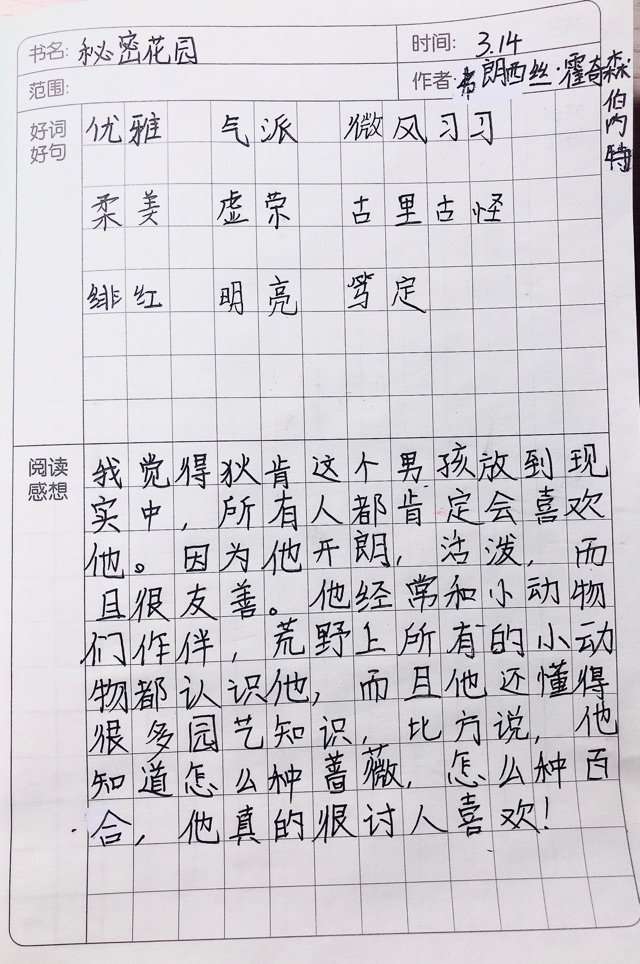 书名: 秘密花园
时间: 3.14
范围:
作者: 弗朗西丝·霍奇森伯内特
好词
好句
优雅 气派 微风习习
柔美 虚荣 古里古怪
绯红 明亮 笃定
阅读
感想
我觉得狄肯这个男孩放到现
实中，所有人都肯定会喜欢
他。因为他开朗，活泼，而
且很友善。他经常和小动物
们作伴，荒野上所有的小动
物都认识他，而且他还懂得
很多园艺知识，比方说，他
知道怎么种蔷薇，怎么种百
合，他真的很讨人喜欢！